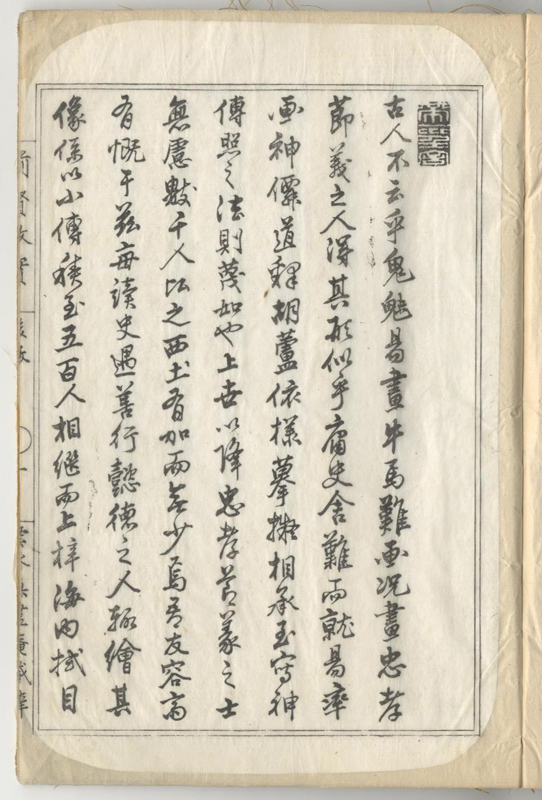 古人不云乎鬼魅易畫牛馬難画况畫忠孝
節義之人得其形似乎庸史舍難而就易率
画神僊道釋胡蘆依様摹擬相承至寫神
傳照之法則蔑如也上世以降忠孝節義之士
無慮數千人比之西土有加而無少焉吾友容斎
有慨于茲每讀史遇善行懿德之人輙繪其
像係以小傳積至五百人相繼而上梓海内拭目
前賢故實